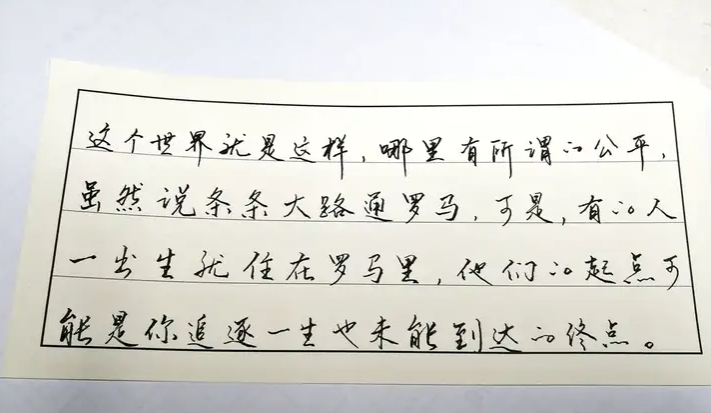 这个世界就是这样，哪里有所谓的公平，
虽然说条条大路通罗马，可是，有的人
一出生就住在罗马里，他们的起点可
能是你追逐一生也未能到达的终点。